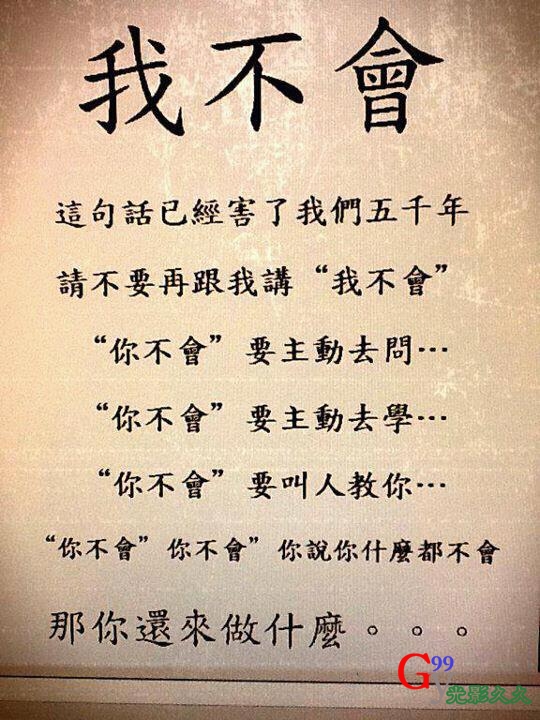 我不會
這句話已經害了我們五千年
請不要再跟我講“我不會”
“你不會”要主動去問…
“你不會”要主動去學…
“你不會”要叫人教你…
“你不會”你不會”你說你什麼都不會
那你還來做什麼。。。
G99
光影久久